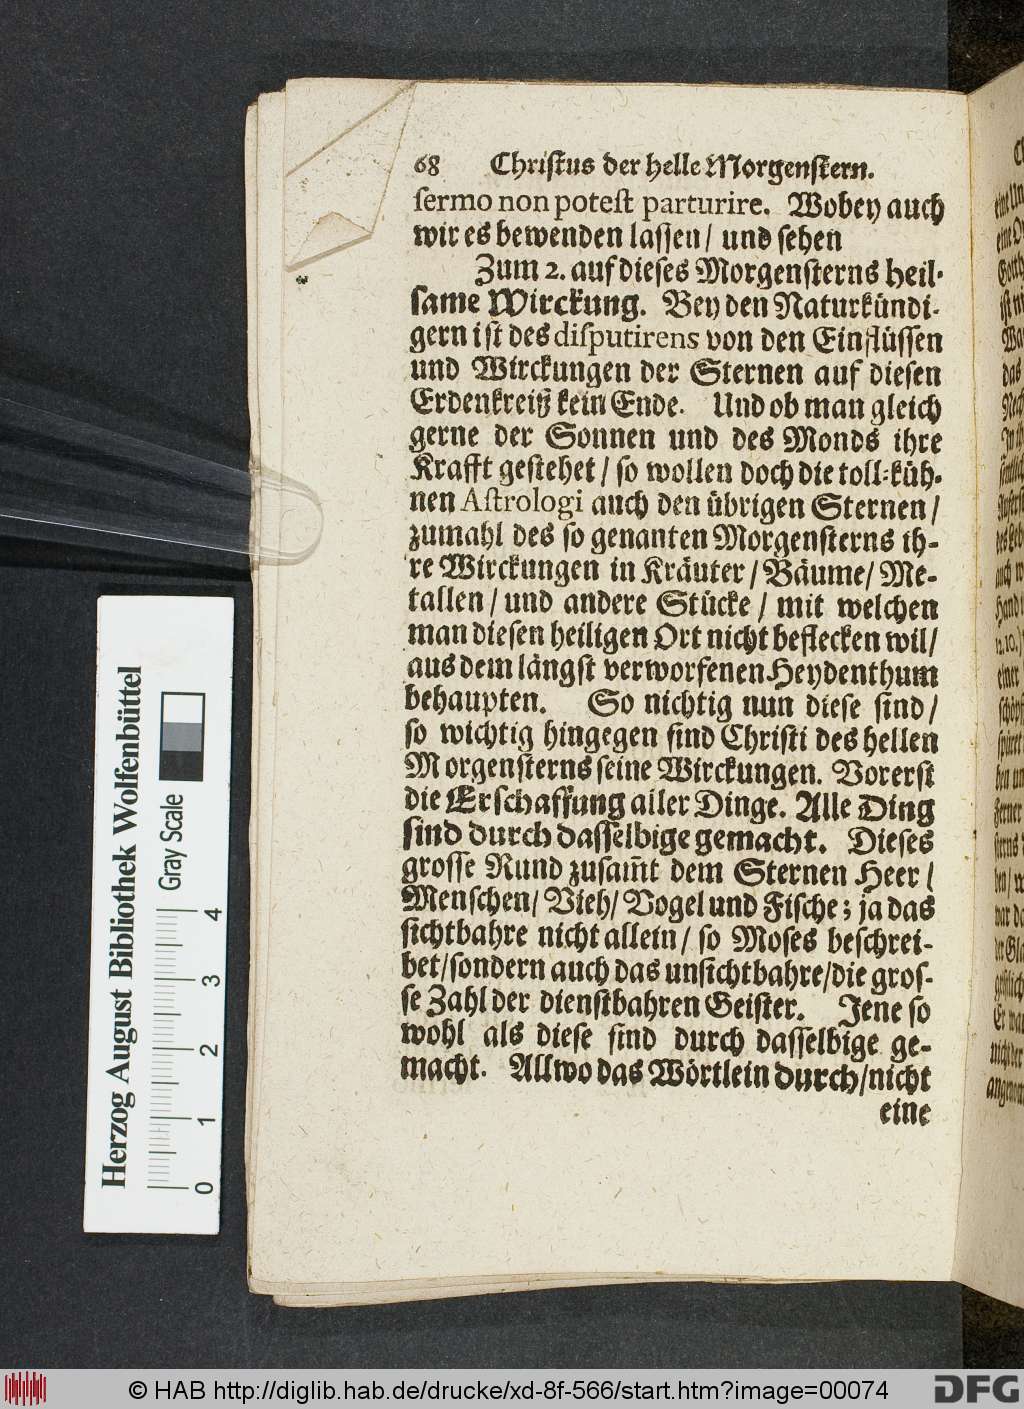 68 Christus der helle Morgenstern.
sermo non potest parturire. Wobey auch
wir es bewenden lassen / und sehen
Zum 2. auf dieses Morgensterns heil-
same Wirckung. Bey den Naturkündi-
gern ist des disputirens von den Einflüssen
und Wirckungen der Sternen auf diesen
Erdenkreiß kein Ende. Und ob man gleich
gerne der Sonnen und des Monds ihre
Krafft gestehet / so wollen doch die toll-küh-
nen Astrologi auch den übrigen Sternen /
zumahl des so genanten Morgensterns ih-
re Wirckungen in Kräuter / Bäume / Me-
tallen / und andere Stücke / mit welchen
man diesen heiligen Ort nicht beflecken wil /
aus dem längst verworfenen Heydenthum
behaupten. So nichtig nun diese sind /
so wichtig hingegen sind Christi des hellen
Morgensterns seine Wirckungen. Vorerst
die Erschaffung aller Dinge. Alle Ding
sind durch dasselbige gemacht. Dieses
grosse Rund zusam̃t dem Sternen Heer /
Menschen / Vieh / Vogel und Fische; ja das
sichtbahre nicht allein / so Moses beschrei-
bet / sondern auch das unsichtbahre / die gros-
se Zahl der dienstbahren Geister. Jene so
wohl als diese sind durch dasselbige ge-
macht. Allwo das Wörtlein durch / nicht
eine
Herzog August Bibliothek Wolfenbüttel
Gray Scale
0 1 2 3 4
© HAB http://diglib.hab.de/drucke/xd-8f-566/start.htm?image=00074
DFG